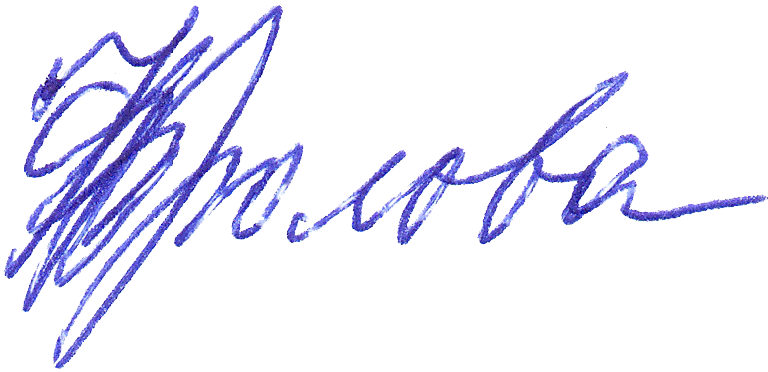 Фролова